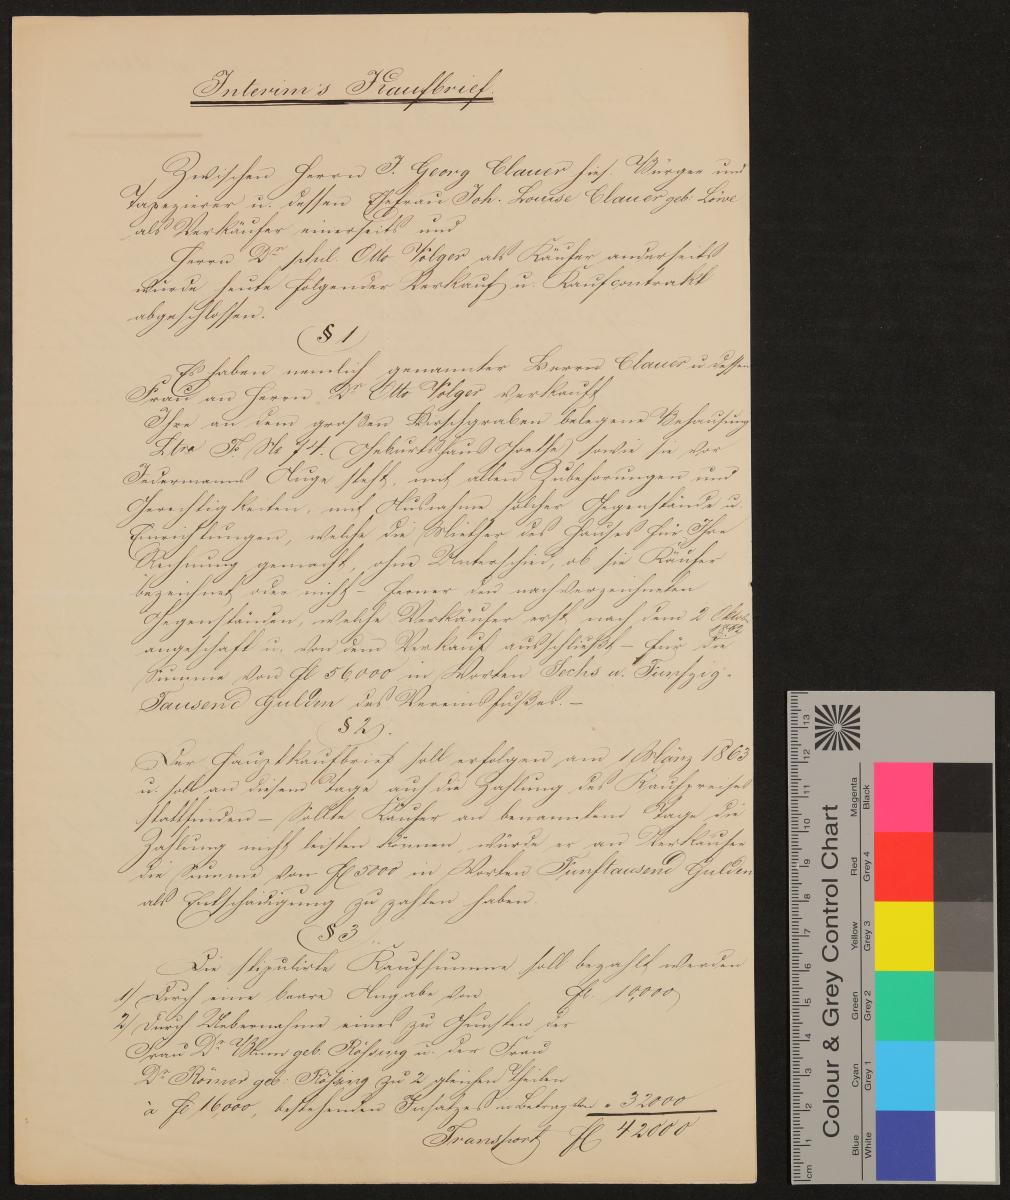 Interim's Kaufbrief.
Zwischen Herrn J. Georg Clauer hies. Bürger und
Tapezierer u. dessen Ehefrau Joh. Louise Clauer geb. Löwe
als Verkäufer einerseits und
Herrn Dr phil. Otto Volger als Käufer anderseits
wurde heute folgender Verkauf u. Kaufcontrakt
abgeschlossen.
§ 1
Es haben nemlich genannter Herrn Clauer u dessen
Frau an Herrn Dr Otto Volger verkauft
Ihre an dem großen Hirschgraben belegene Behausung
Litra F. No 74. (Geburtshaus Goethe) sowie sie vor
Jedermanns Auge steht, mit allen Zubehörungen und
Gerechtigkeiten, mit Ausnahme solcher Gegenstände u.
Einrichtungen, welche die Miether des Hauses für Ihre
Rechnung gemacht, ohne Unterschied, ob sie Käufer
bezeichnet oder nicht – ferner den nachverzeichneten
Gegenständen, welche Verkäufer erst nach dem 2 Oktob
1862
angeschafft u. von dem Verkauf ausschließt – für die
Summe von fl 56,000 in Worten Sechs u. Funfzig-
Tausend Gulden des Vereinsfußes. –
§ 2.
Der Hauptkaufbrief soll erfolgen am 1 März 1863
u. soll an diesem Tage auch die Zahlung des Kaufpreises
stattfinden – Sollte Käufer an benanntem Tage die
Zahlung nicht leisten können, würde er an Verkäufer
die Summe von fl 5000 in Worten Fünftausend Gulden
als Entschädigung zu zahlen haben.
§ 3
Die stipulirte Kaufsumme soll bezahlt werden
1/ Durch eine baare Angabe von fl 10,000
2/ Durch Uebernahme eines zu Gunsten der
Frau Dr geb. Rössing u. der Frau
Dr Römer geb. Rössing zu 2 gleichen Theilen
à fl 16000, bestehenden Insatzes im Betrag von " 32000
Transport fl 42000